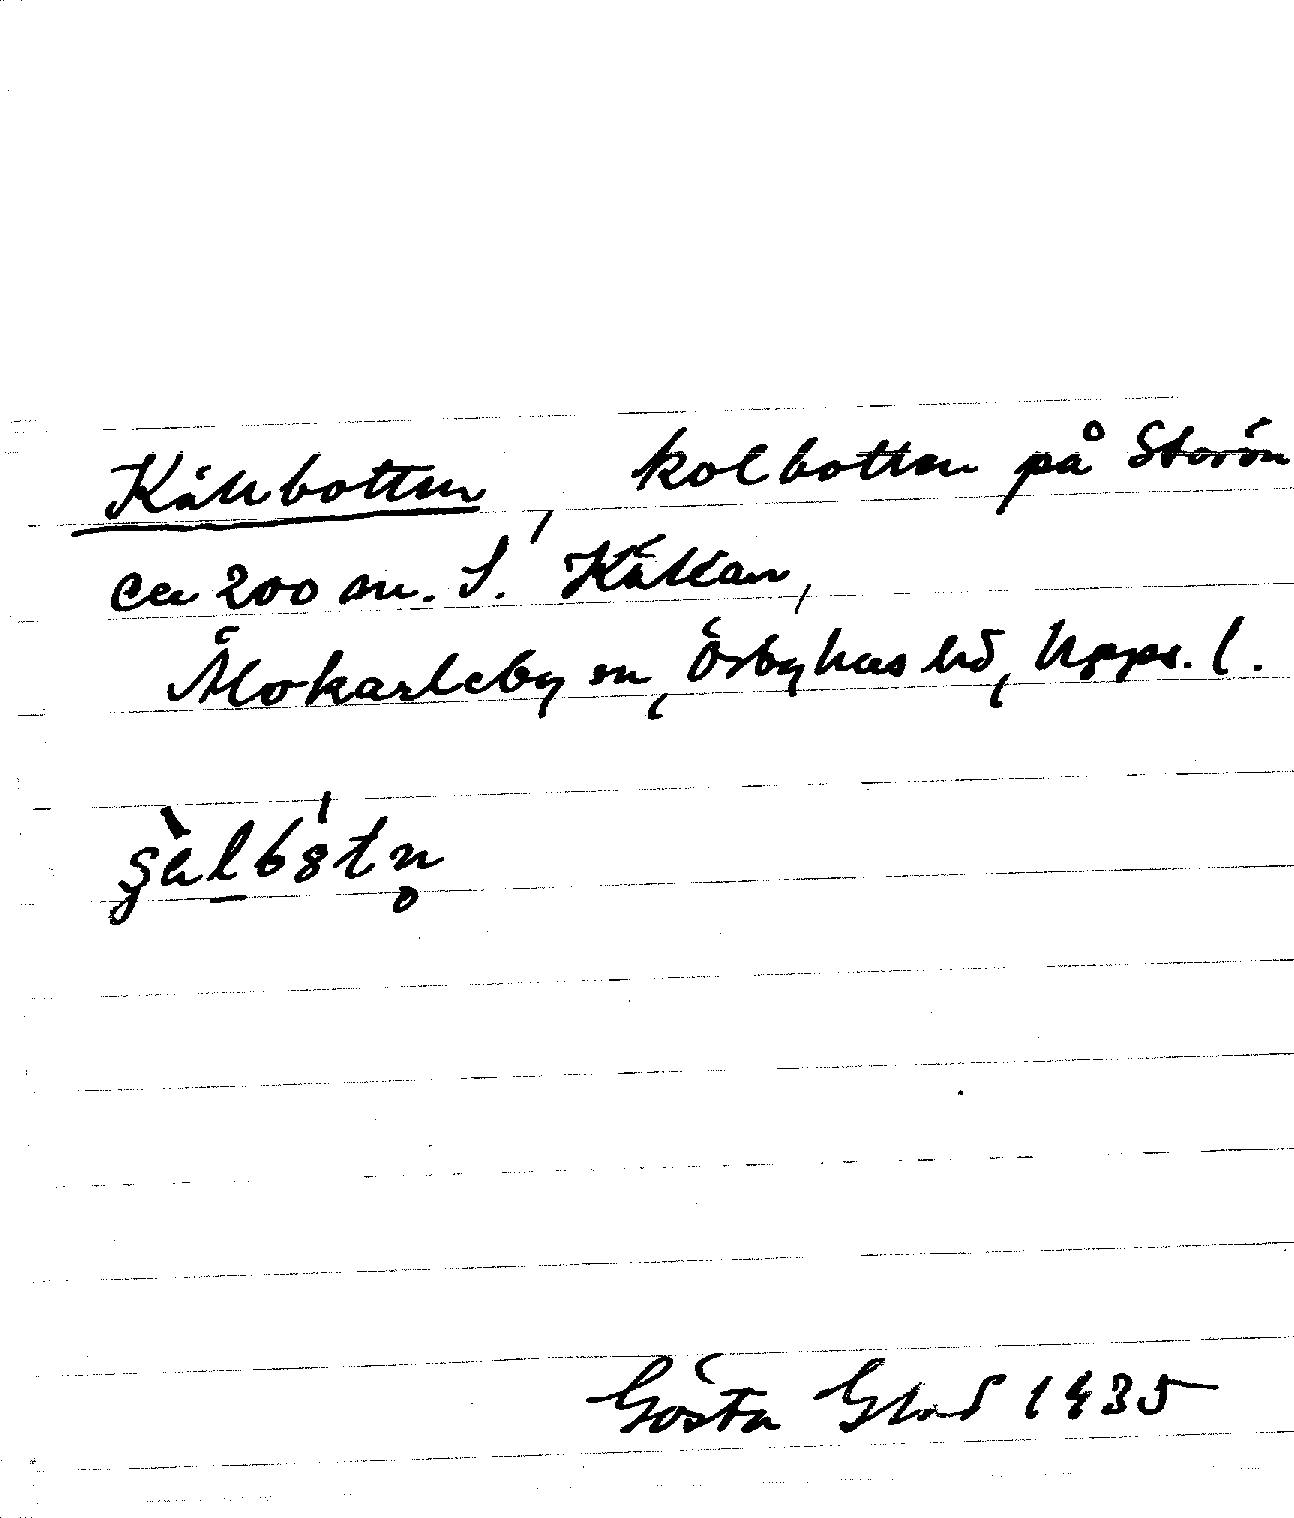 Källbotten, kolbotten på Storön
ca 200 m. S. Källan,
Älvkarleby sn, Örbyhus hd, Upps. l.
Gösta Glad 1935